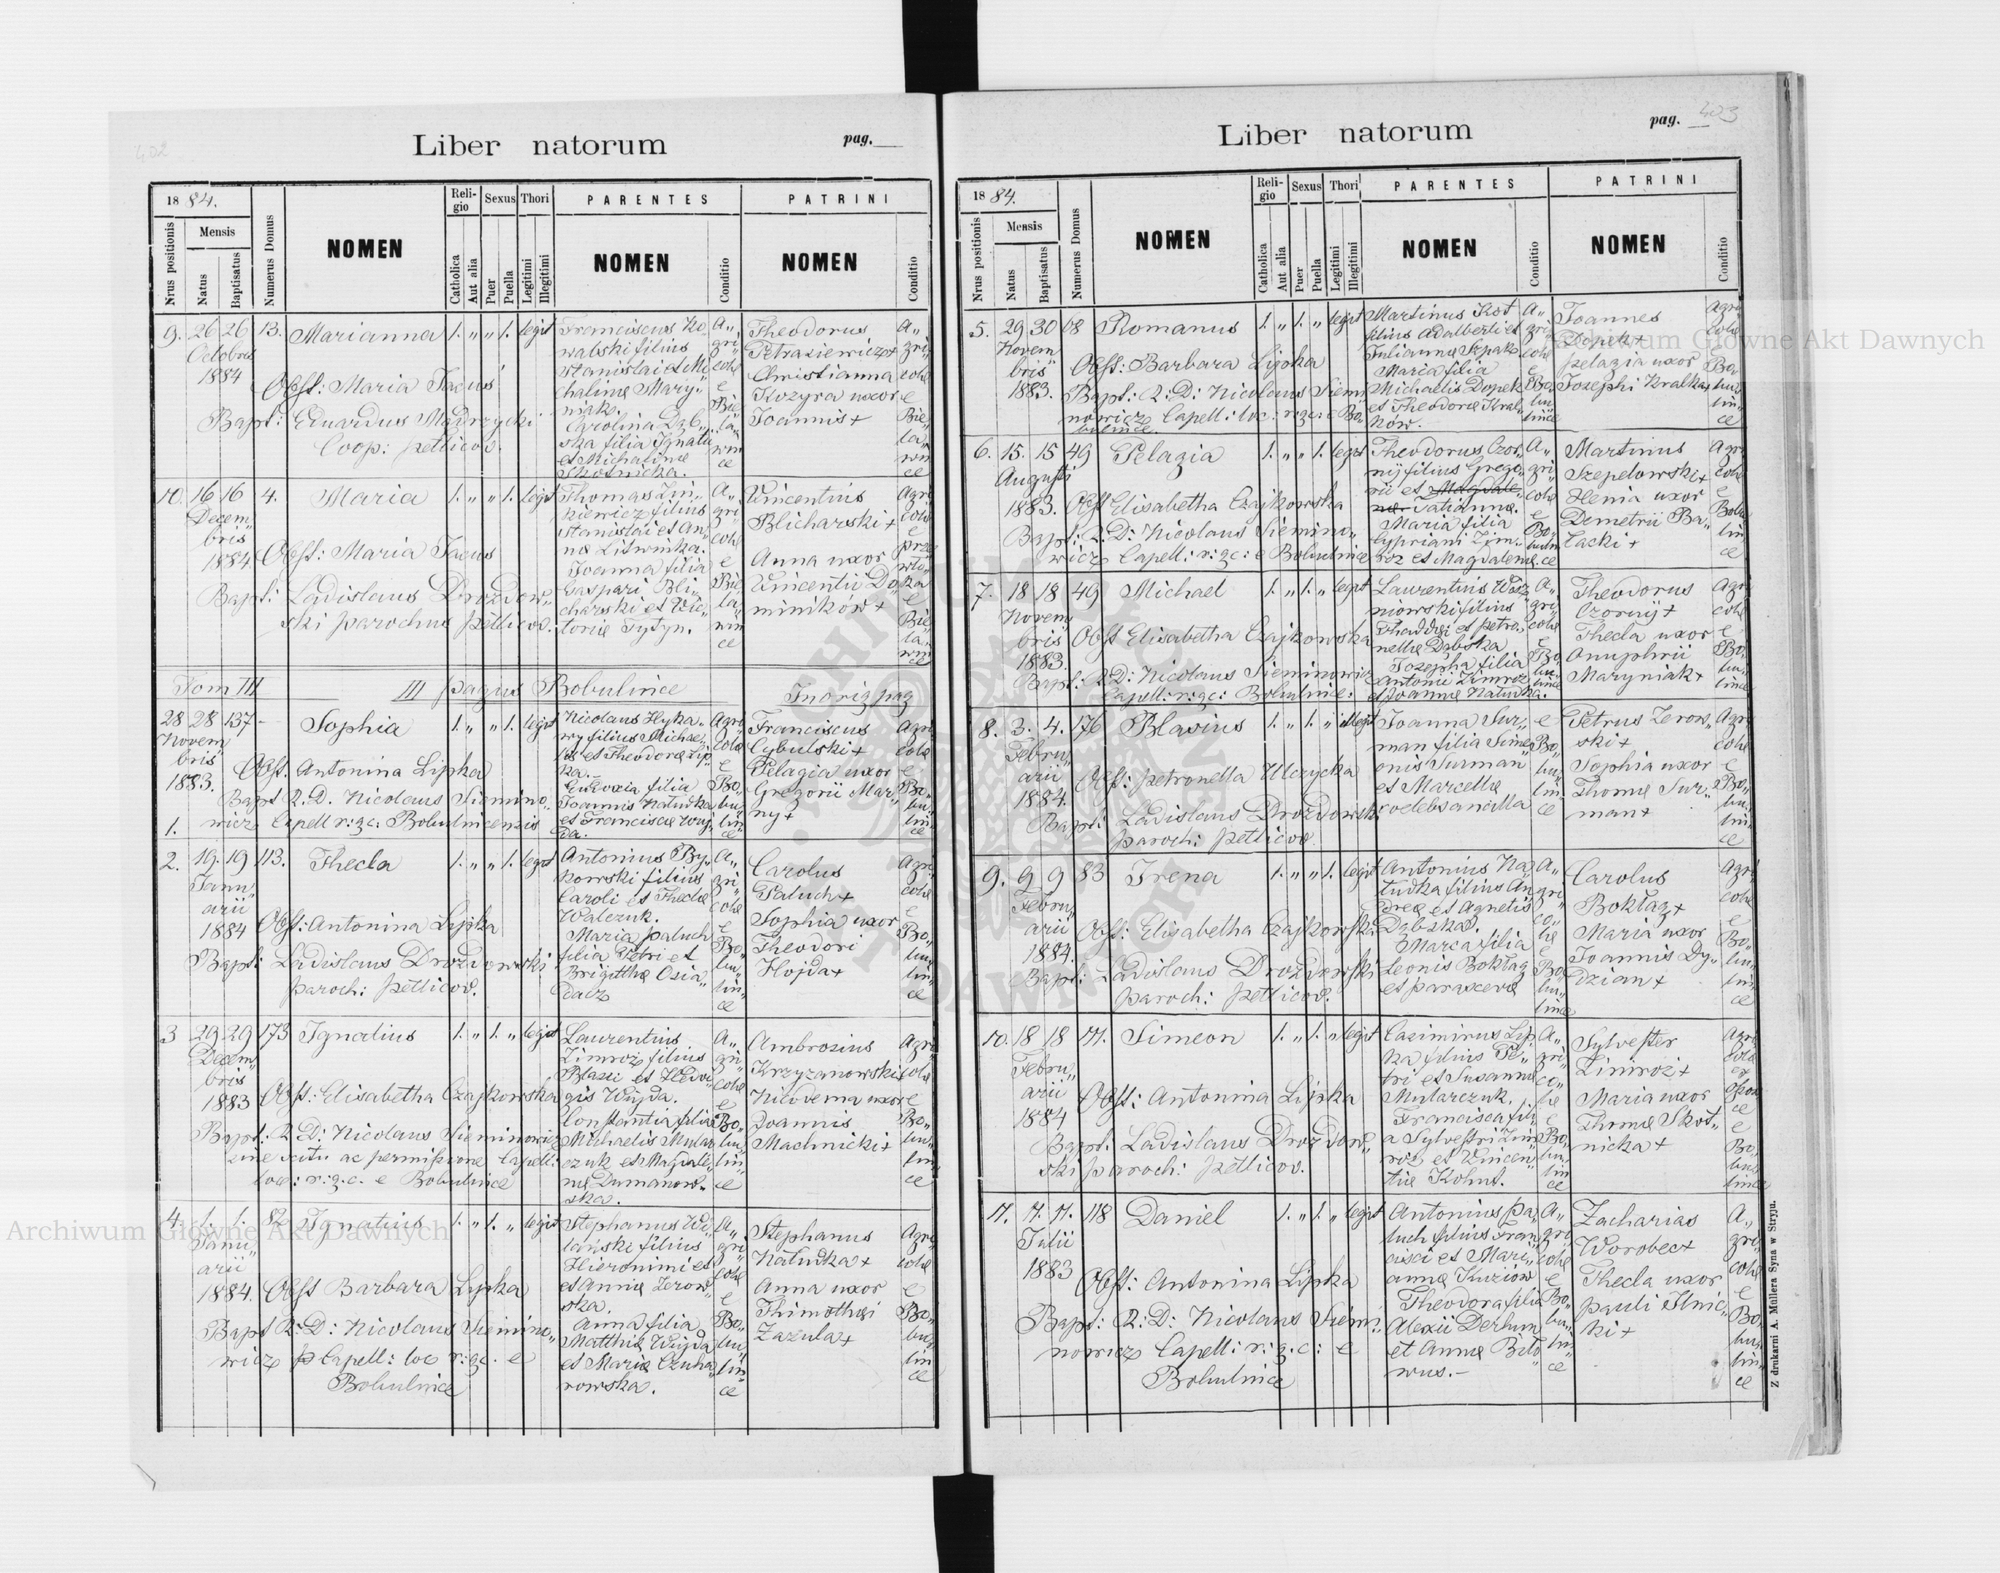 402
Liber natorum
pag.
18 84.
Mensis
Nrus positionis
Natus
Baptisatus
Numerus Domus
NOMEN
Religio
Catholica
Aut alia
Sexus
Puer
Puella
Thori
Legitimi
Illegitimi
PARENTES
NOMEN
Conditio
PATRINI
NOMEN
Conditio
9. 26 26 13. Marianna 1. " " 1. legit
Octobris
1884
Obst: Maria Jacus
Bapt: Eduardus Mądrzycki
Coop: petlicov.
Franciscus Ko-
walski filius
Stanislai et Mi
chalinæ Mary-
niak.
Carolina Dąb-
ska filia Ignatii
et Michalinæ
Skotnicka.
A"
gri"
colæ
e
Bie
la"
win
ce
Theodorus
Petrasiewicz+
Christianna
Kozyra uxor
Joannis+
A"
gri"
colæ
e
Bie"
la"
win
ce
10. 16 16 4. Maria 1. " " 1. legit
Decem"
bris
1884
Obst: Maria Jacus
Bapt: Ladislaus Drozdow"
ski parochus petlicov.
Thomas Zin"
kiewicz filius
Stanislai et An"
næ Litwinka.
Joanna filia
Gaspari Bli"
charski et Vic"
toriæ Tytyn.
A"
gri"
colæ
e
Bie"
la"
win
ce
Vincentius
Blicharski+
Anna uxor
Vincentii Do"
minikow+
Agri
colæ
e
Bie"
la"
win
ce
Tom III III pagus Bobulince In orig pag
28 28 137 Sophia 1. " " 1. legit
Novem
bris
1883.
Obst. Antonina Lipka
Bapt R.D. Nicolaus Siemino,
1. wicz Capell r:g:c: Bobulincensis
Nicolaus Hyka"
wy filius Michae"
lis et Theodoræ Lip"
ka.
Eudoxia filia
Joannis Natudka
et Franciscæ Wuj"
da.
Agri
colæ
e
Bo"
bu"
lin"
ce
Franciscus
Cybulski+
Pelagia uxor
Gregorii Mar"
ny+
Agri
colæ
e
Bo"
bu"
lin"
ce
2. 19. 19 113. Thecla 1. " " 1. legit
Janu"
arii
1884
Obst: Antonina Lipka
Bapt: Ladislaus Drozdowski
paroch: petlicov.
Antonius By"
kowski filius
Caroli et Theclæ
Walczuk.
Maria Paluch
filia Petri et
Brigittæ Osia"
dacz
A"
gri"
colæ
e
Bo"
bu"
lin"
ce
Carolus
Paluch+
Sophia uxor
Theodori
Hojda+
Agri
colæ
e
Bo"
bu"
lin"
ce
3 29 29 173 Ignatius 1. " 1. " legit
Decem"
bris
1883
Obst: Elisabetha Czajkowska
Bapt: R.D: Nicolaus Sieminowicz
sine scitu ac permissione Capell:
loc: r:g:c. e Bobulince
Laurentius
Zimroz filius
Blasii et Hedvi
gis Wujda.
Constantia filia
Michaelis Mular
czuk et Magdale"
næ Dumanow"
ska.
A"
gri"
colæ
e
Bo"
bu"
lin"
ce
Ambrosius
Krzyzanowski+
Nicodema uxor
Joannis
Machnicki+
Agri
colæ
e
Bo"
bu"
lin"
ce
4. 1. 1. 82 Ignatius 1. " 1. " legit
Janu"
arii
1884.
Obst Barbara Lipka
Bapt R:D: Nicolaus Siemino"
wicz p Capell: loc r:g:c. e
Bobulince
Stephanus Wi"
lański filius
Hieronimi et
et Annæ Zerow"
ska.
Anna filia
Matthiæ Wujda
et Mariæ Czuha
rowska.
A"
gri"
colæ
e
Bo"
bu"
lin"
ce
Stephanus
Natudka+
Anna uxor
Thimothei
Zazula+
Agri"
colæ
e
Bo"
bu"
lin"
ce
Liber natorum
pag. 403
18 84.
Mensis
Nrus positionis
Natus
Baptisatus
Numerus Domus
NOMEN
Religio
Catholica
Aut alia
Sexus
Puer
Puella
Thori
Legitimi
Illegitimi
PARENTES
NOMEN
Conditio
PATRINI
NOMEN
Conditio
5. 29 30 68 Romanus 1. " 1. " legit
Novem
bris
1883.
Obst: Barbara Lipka
Bapt: R:D: Nicolaus Siemi
nowicz Capell: loc: r:g:c: e Bo
bulince
Martinus Kot
filius Adalberti et
Julianna Szpak
Maria filia
Michaelis Dopek
et Theodoræ Kral"
kow.
A"
gri"
colæ
e
Bo
bu
lince
Joannes
Dopek+
Pelagia uxor
Josephi Kralka
Agri
colæ
e
Bo
bu"
lin"
ce
6. 15. 15 49 Pelagia 1. " " 1. legit
Augusti
1883.
Obst Elisabetha Czajkowska
Bapt: R.D: Nicolaus Siemino"
wicz Capell: r:g:c: e Bobulince
Theodorus Czor"
nij filius Grego"
rii et Magdale"
næ Tatianna.
Maria filia
Cypriani Zim"
roz et Magdalenæ
A"
gri"
colæ
e
Bo"
bulin
ce
Martinus
Szepelowski+
Xenia uxor
Demetrii Ba"
lacki+
Agri
colæ
e
Bobu
lin
ce
7. 18 18 49 Michael 1. " 1. " legit
Novem
bris
1883.
Obst Elisabetha Czajkowska
Bapt: R.D: Nicolaus Sieminowicz
Capell: r:g:c: Bobulince:
Laurentius Wisz
niowski filius
Thaddæi et Petro"
nellæ Dębska
Josepha filia
Antonii Zimroz
et Joannæ Natudka.
A"
gri"
colæ
e
Bo"
bu"
lince
Theodorus
Czornij+
Thecla uxor
Onuphrii
Maryniak+
Agri
colæ
e
Bo"
bu"
lince
8. 3. 4. 176 Blasius 1. " 1. " illegit
Febru"
arii
1884.
Obst: Petronella Ulczycka
Bapt: Ladislaus Drozdowski
paroch: petlicov
Joanna Sur"
man filia Sime
onis Surman
et Marcellæ
coelebs ancilla
e
Bo"
bu"
lin"
ce
Petrus Zerow"
ski+
Sophia uxor
Thomæ Sur"
man+
Agri
colæ
e
Bo"
bu"
lin"
ce
9. 9 9 83 Irena 1. " " 1. legit
Febru"
arii
1884.
Obst: Elisabetha Czajkowska
Bapt: Ladislaus Drozdowski
paroch: petlicov.
Antonius Na
tudka filius An
dreæ et Agnetis
Dębska.
Marca filia
Leonis Boktag
et Parascevæ
A"
gri"
co"
læ
e
Bo"
bu"
lince
Carolus
Boktag+
Maria uxor
Joannis Dy"
dzian+
Agri"
colæ
e
Bo"
bu"
lin"
ce
10. 18 18 171. Simeon 1. " 1. " legit
Febru"
arii
1884
Obst: Antonina Lipka
Bapt. Ladislaus Drozdow"
ski paroch: petlicov.
Casimirus Lip
ka filius Pe"
tri et Susannæ
Mularczuk.
Francisca fili
a Sylvestri Zim
roz et Vincen"
tiæ Kohut.
A"
gri"
co"
læ
e
Bo"
bu"
lin
ce
Sylvester
Zimroz+
Maria uxor
Thomæ Skot"
nicka+
Agri
colæ
e
Bo"
bu"
lince
11. 17. 17. 118 Daniel 1. " 1. " legit
Julii
1883
Obst: Antonina Lipka
Bapt: R:D: Nicolaus Siemi"
nowicz Capell: r:g:c: e
Bobulince
Antonius Pa"
luch filius Fran
cisci et Mari"
annæ Kuziow
Theodora filia
Alexii Derhim
et Annæ Bilo"
wus.-
A"
gri"
colæ
e
Bo"
bu"
lin"
ce
Zacharias
Worobec+
Thecla uxor
Pauli Ilnic"
ki+
A"
gri"
colæ
e
Bo"
bu"
lin"
ce
Z drukarni A. Müllera Syna w Stryju.
Archiwum Główne Akt Dawnych
Archiwum Główne Akt Dawnych